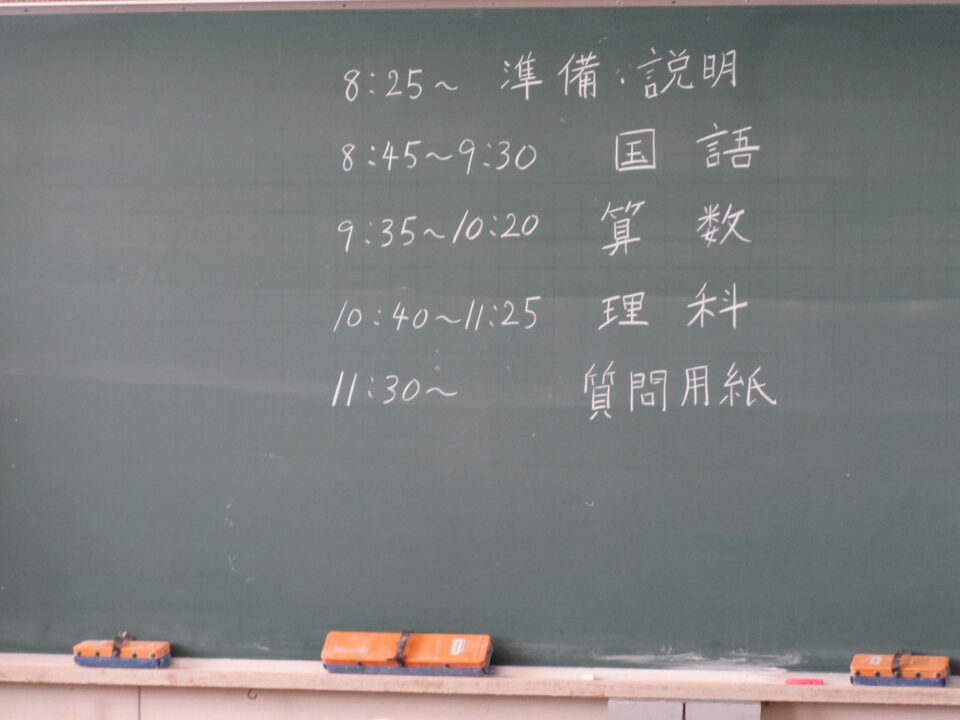 8:25～ 準備・説明
8:45～9:30 国語
9:35～10:20 算数
10:40～11:25 理科
11:30～ 質問用紙